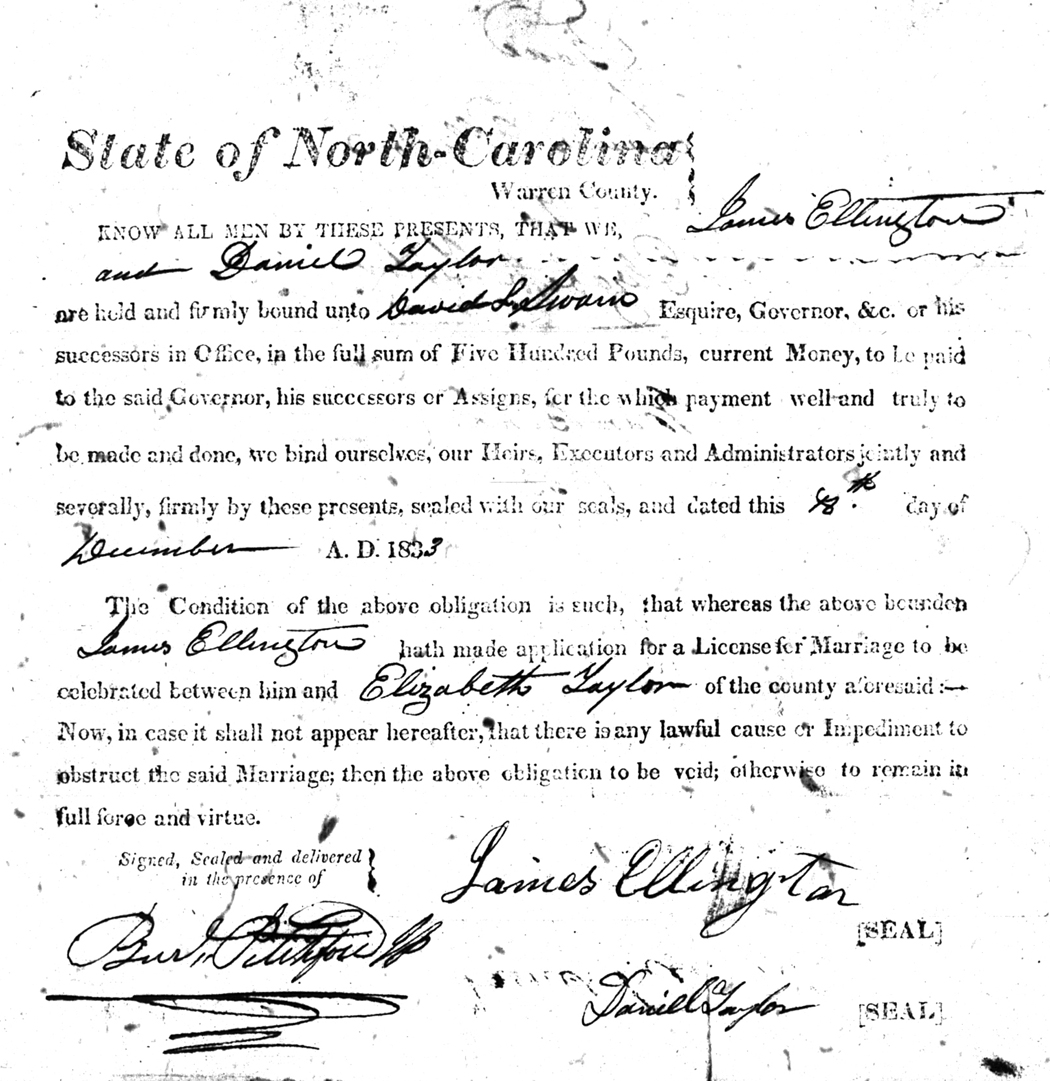 State of North-Carolina
Warren County.
KNOW ALL MEN BY THESE PRESENTS, THAT WE, James Ellington
and Daniel Taylor
are held and firmly bound unto David L. Swain Esquire, Governor, &c. or his
successors in Office, in the full sum of Five Hundred Pounds, current Money, to be paid
to the said Governor, his successors or Assigns, for the which payment well and truly to
be made and done, we bind ourselves, our Heirs, Executors and Administrators jointly and
severally, firmly by these presents, sealed with our seals, and dated this day of
December A. D. 1833
The Condition of the above obligation is such, that whereas the above bounden
James Ellington hath made application for a License for Marriage to be
celebrated between him and Elizabeth Taylor of the county aforesaid:—
Now, in case it shall not appear hereafter, that there is any lawful cause or Impediment to
obstruct the said Marriage; then the above obligation to be void; otherwise to remain in
full force and virtue.
Signed, Sealed and delivered
in the presence of
James Ellington
[SEAL]
Daniel Taylor [SEAL]